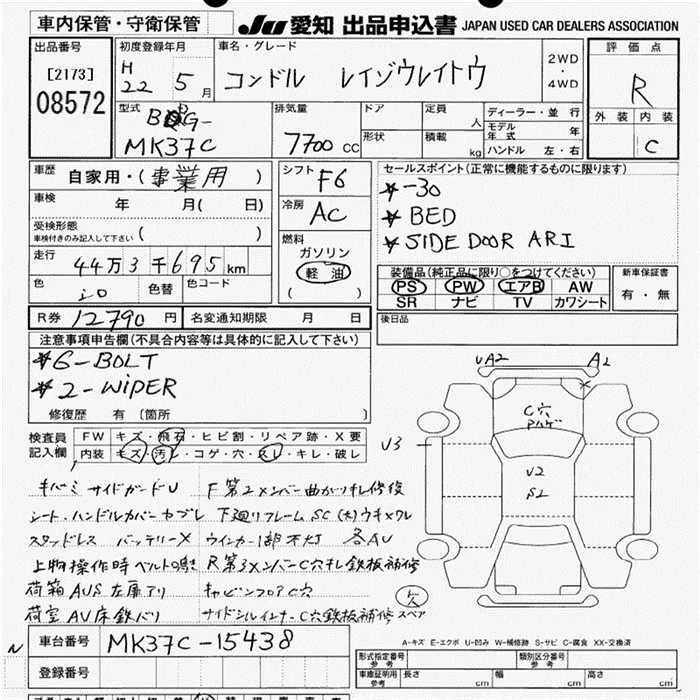 車内保管・守衛保管
JU 愛知 出品申込書 JAPAN USED CAR DEALERS ASSOCIATION
出品番号
[2173]
08572
初度登録年月
H 22 5月
車名・グレード
コンドル レイゾウレイトウ
2WD
・
4WD
評価点
R
外装 内装
C
型式
MK37C
排気量
7700 cc
ドア
形状
定員 人
積載 kg
ディーラー・並行
モデル年式 年
ハンドル 左・右
車歴 自家用・(事業用)
車検 年 月( 日)
受検形態
車検付きのみ記入して下さい ( )
走行 44万3千695km
色 シロ 色替 色コード
シフト F6
冷房 AC
燃料
ガソリン
軽油
( )
セールスポイント(正常に機能するものに限ります)
*-30
*BED
*SIDE DOOR ARI
装備品(純正品に限り○をつけてください)
PS PW エアB AW
SR ナビ TV カワシート
新車保証書
有・無
後日品
R券 12790円 名変通知期限 月 日
注意事項申告欄(不具合内容等は具体的に記入して下さい)
*6-BOLT
*2-WiPER
修復歴 有 〔箇所 〕
検査員記入欄
FW キズ・飛石・ヒビ割・リペア跡・X要
内装 キズ・汚レ・コゲ・穴・スレ・キレ・破レ
キバミ サイドガードU F第2メンバー曲がりキレ修復
シート・ハンドルカバーヤブレ 下廻リフレームSC(大)ウキメクレ
スタッドレス バッテリーX ウインカー1部不灯 各AU
上物操作時ベルトの鳴き R第3メンバーC穴キレ鉄板補修
荷箱AUS 左扉アリ キャビンフロアC穴
荷室AV床鉄バリ サイドシルインナーC穴鉄板補修 スペア
UA2
A2
C穴
U3
U2
S2
欠
車台番号 MK37C-15438
登録番号
A-キズ E-エクボ U-凹み W-補修跡 S-サビ C-腐食 XX-交換済
形式指定番号 参考
類別区分番号 参考
車庫証明用 参考
長さ cm 幅 cm 高さ cm